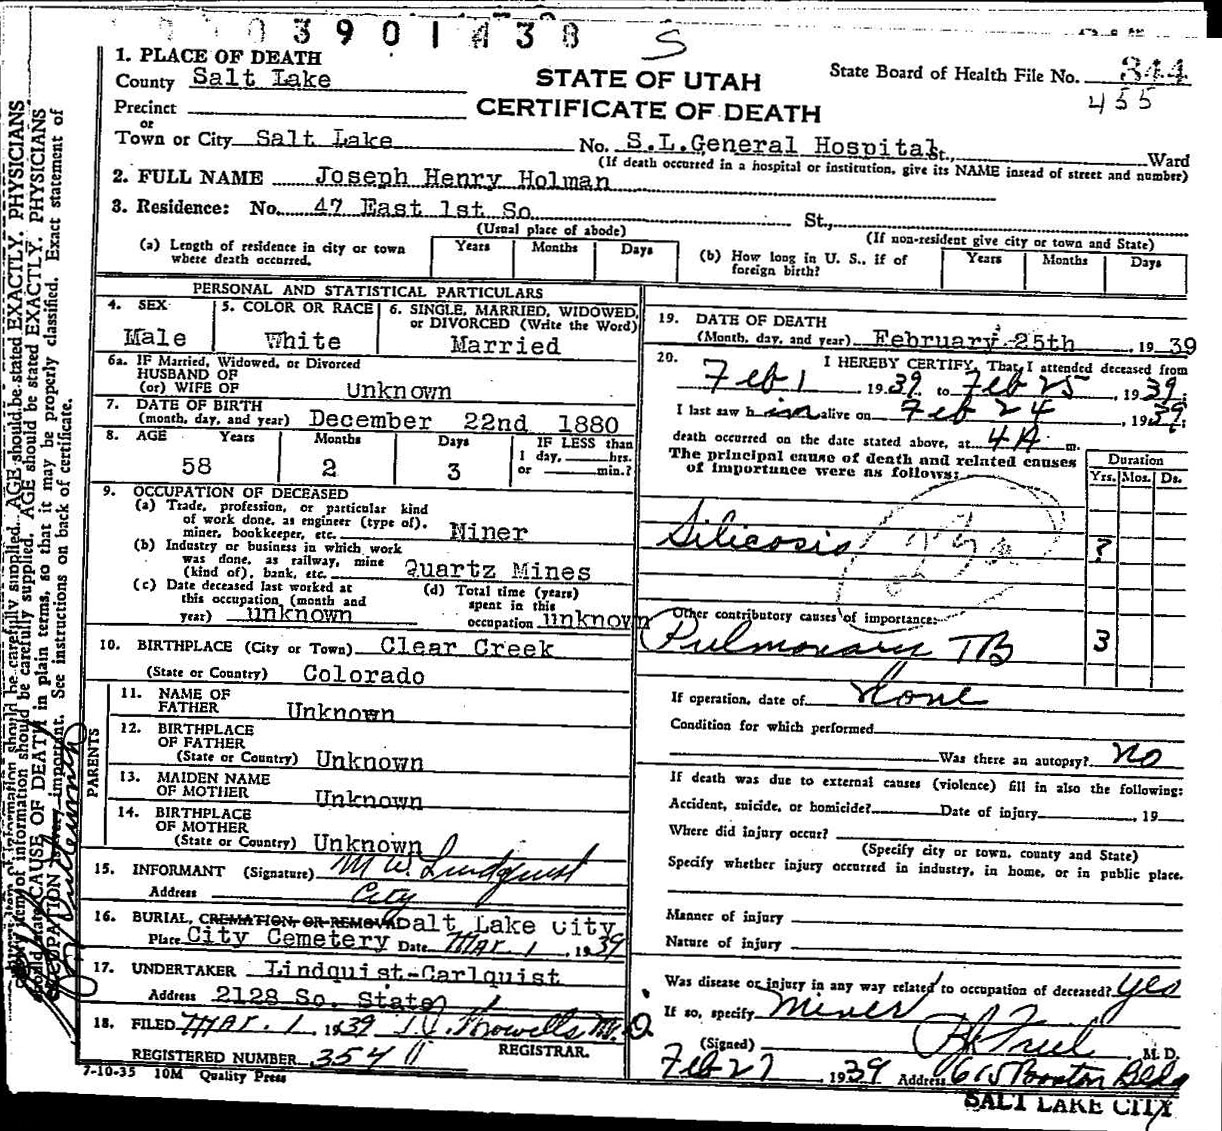 3901438 S
1. PLACE OF DEATH
County Salt Lake
STATE OF UTAH
CERTIFICATE OF DEATH
State Board of Health File No. 344
455
Precinct
or
Town or City Salt Lake No. S.L.General Hospital St., Ward
(If death occurred in a hospital or institution, give its NAME insead of street and number)
2. FULL NAME Joseph Henry Holman
3. Residence: No. 47 East 1st So St.,
(Usual place of abode) (If non-resident give city or town and State)
(a) Length of residence in city or town where death occurred. Years Months Days
(b) How long in U. S., if of foreign birth? Years Months Days
PERSONAL AND STATISTICAL PARTICULARS
4. SEX Male
5. COLOR OR RACE White
6. SINGLE, MARRIED, WIDOWED, or DIVORCED (Write the Word) Married
6a. IF Married, Widowed, or Divorced
HUSBAND OF
(or) WIFE OF Unknown
7. DATE OF BIRTH
(month, day, and year) December 22nd 1880
8. AGE Years Months Days IF LESS than
1 day, hrs.
or min.?
58 2 3
9. OCCUPATION OF DECEASED
(a) Trade, profession, or particular kind
of work done, as engineer (type of),
miner, bookkeeper, etc. Miner
(b) Industry or business in which work
was done, as railway, mine
(kind of), bank, etc. Quartz Mines
(c) Date deceased last worked at
this occupation, (month and
year) unknown
(d) Total time (years)
spent in this
occupation unknown
10. BIRTHPLACE (City or Town) Clear Creek
(State or Country) Colorado
PARENTS
11. NAME OF
FATHER Unknown
12. BIRTHPLACE
OF FATHER
(State or Country) Unknown
13. MAIDEN NAME
OF MOTHER Unknown
14. BIRTHPLACE
OF MOTHER
(State or Country) Unknown
15. INFORMANT (Signature) M W. Lindquist
Address City
16. BURIAL, CREMATION, OR REMOVAL Salt Lake City
Place City Cemetery Date Mar. 1, 1939
17. UNDERTAKER Lindquist-Carlquist
Address 2128 So. State
18. FILED Mar. 1 1939 M.D.
REGISTRAR.
REGISTERED NUMBER 354
7-10-35 10M Quality Press
19. DATE OF DEATH
(Month, day, and year) February 25th, 1939
20. I HEREBY CERTIFY, That I attended deceased from
Feb 1 1939, to Feb 25, 1939;
I last saw h im alive on Feb 24, 1939;
death occurred on the date stated above, at 4 A m.
The principal cause of death and related causes
of importance were as follows:
Duration
Yrs. Mos. Ds.
Silicosis ?
Other contributory causes of importance:
Pulmonary TB 3
If operation, date of None
Condition for which performed
Was there an autopsy? No
If death was due to external causes (violence) fill in also the following:
Accident, suicide, or homicide? Date of injury, 19
Where did injury occur?
(Specify city or town, county and State)
Specify whether injury occurred in industry, in home, or in public place.
Manner of injury
Nature of injury
Was disease or injury in any way related to occupation of deceased? yes
If so, specify Miner
(Signed) M. D.
Feb 27, 1939 Address 615 Boston Bldg
SALT LAKE CITY
AGE should be stated EXACTLY. PHYSICIANS
should state CAUSE OF DEATH in plain terms, so that it may be properly classified. Exact statement of
OCCUPATION is very important. See instructions on back of certificate.